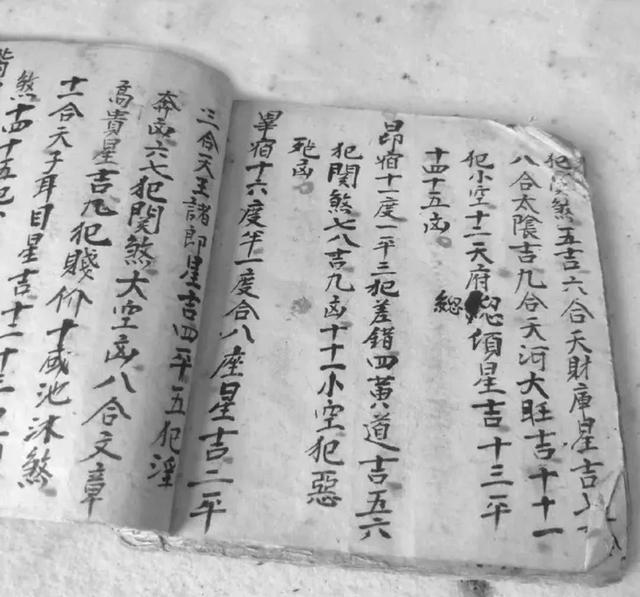 犯關煞五吉六合天財庫星吉七
八合太陰吉九合天河大旺吉十十一
犯小空十二天府總領星吉十三平
總
十四十五凶
昂宿十一度一平二三犯差錯四黃道吉五六
犯関煞七八吉九凶十十一小空犯惡
死凶
畢宿十六度半一度合八座星吉二平
三合天王諸郎星吉四平五犯淫
奔凶六七犯関煞大空凶八合文章
高貴星吉九犯賤价十咸池沐煞
十一合天子耳目星吉十二十三
煞十四十五犯